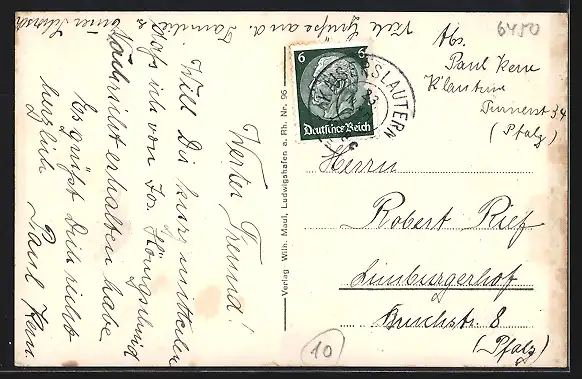 Werter Freund!
Will Dir kurz mitteilen
daß ich von Jos.
Nachricht erhalten habe.
Es grüßt Dich recht
herzlich Paul Kern
Viele Grüße an d. Familie
6450
Abs.
Paul Kern
K'lautern
Turnerstr 34
(Pfalz)
6 6
Deutsches Reich
KAISERSLAUTERN
Herrn
Robert Rief
Limburgerhof
Bruchstr. 8
(Pfalz)
Verlag Wilh. Maul, Ludwigshafen a. Rh. Nr. 96
10